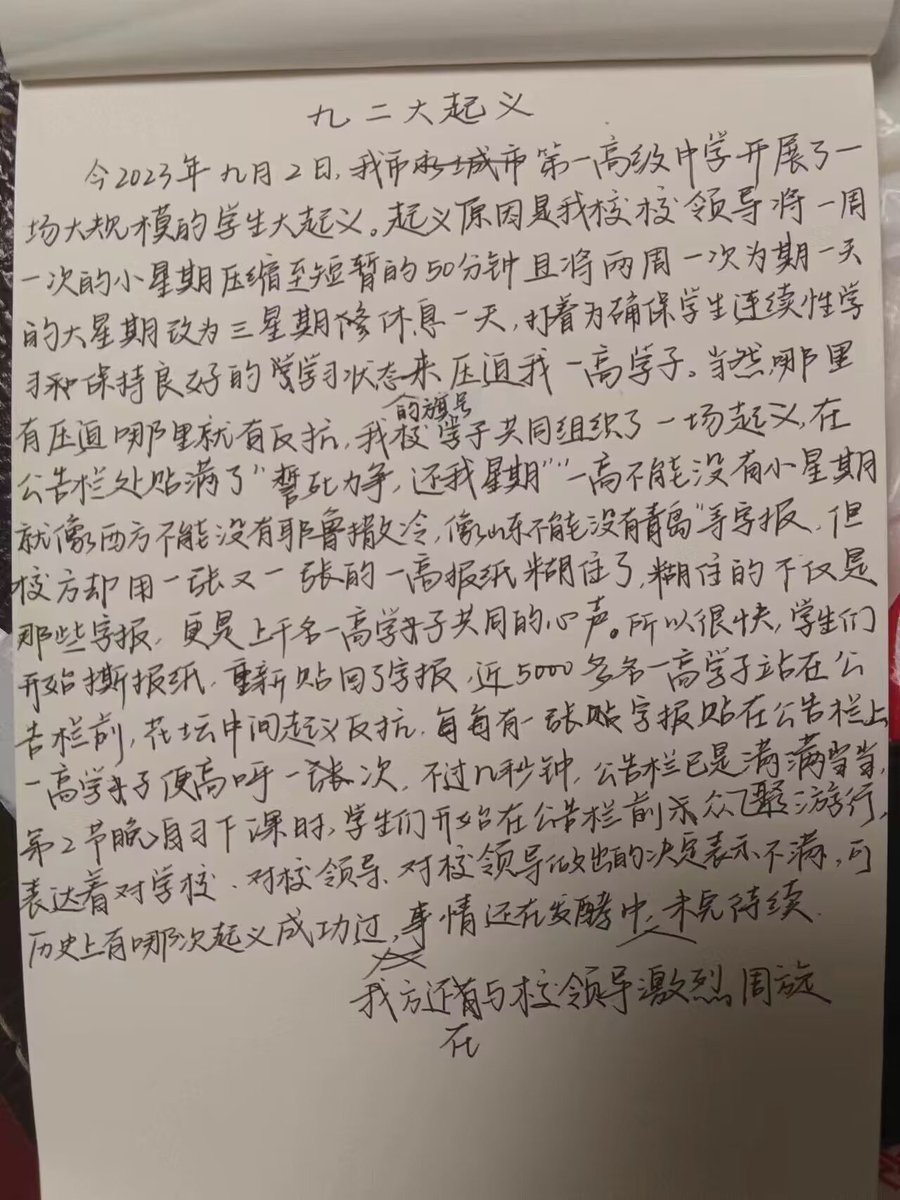 九二大起义
今2023年九月2日,我市永城市第一高级中学开展了一
场大规模的学生大起义。起义原因是我校校领导将一周
一次的小星期压缩至短暂的50分钟且将两周一次为期一天
的大星期改为三星期修休息一天,打着为确保学生连续性学
习和保持良好的学习状态来压迫我一高学子。当然哪里
的旗号
有压迫哪里就有反抗,我校学子共同组织了一场起义,在
公告栏处贴满了"誓死力争,还我星期""一高不能没有小星期
就像西方不能没有耶鲁撒冷,像山东不能没有青岛"等字报,但
校方却用一张又一张的一高报纸糊住了,糊住的不仅是
那些字报,更是上千名一高学子共同的心声。所以很快,学生们
开始撕报纸,重新贴回了字报,近5000多名一高学子站在公
告栏前,花坛中间起义反抗,每每有一张字报贴在公告栏上
一高学子便高呼一张次,不过几秒钟,公告栏已是满满当当,
第2节晚自习下课时,学生们开始在公告栏前示众飞聚游行,
表达着对学校、对校领导、对校领导做出的决定表示不满,可
历史上有哪次起义成功过,事情还在发酵中,未完待续.
我方还有与校领导激烈周旋
在